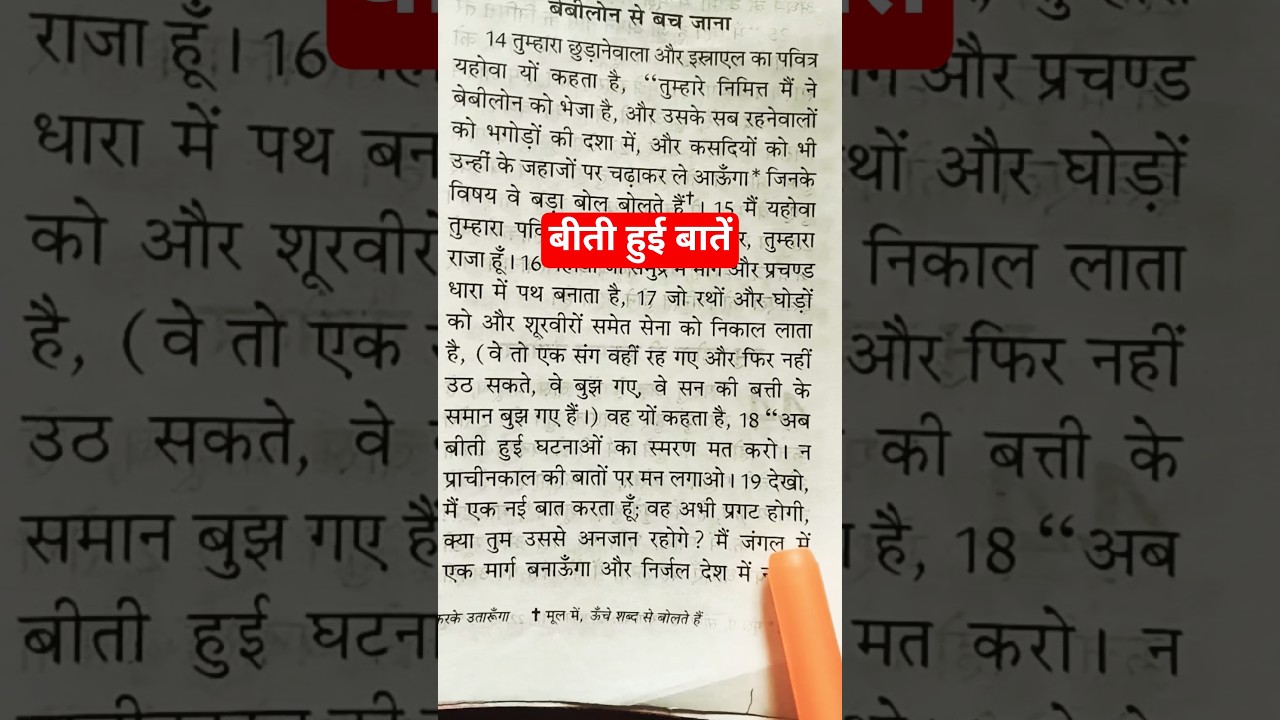 बेबीलोन से बच जाना
14 तुम्हारा छुड़ानेवाला और इस्राएल का पवित्र
यहोवा यों कहता है, “तुम्हारे निमित्त मैं ने
बेबीलोन को भेजा है, और उसके सब रहनेवालों
को भगोड़ों की दशा में, और कसदियों को भी
उन्हीं के जहाजों पर चढ़ाकर ले आऊँगा* जिनके
विषय वे बड़ा बोल बोलते हैं†। 15 मैं यहोवा
तुम्हारा तुम्हारा
बीती हुई बातें
राजा हूँ। 16 और प्रचण्ड
धारा में पथ बनाता है, 17 जो रथों और घोड़ों
को और शूरवीरों समेत सेना को निकाल लाता
है, (वे तो एक संग वहीं रह गए और फिर नहीं
उठ सकते, वे बुझ गए, वे सन की बत्ती के
समान बुझ गए हैं।) वह यों कहता है, 18 “अब
बीती हुई घटनाओं का स्मरण मत करो। न
प्राचीनकाल की बातों पर मन लगाओ। 19 देखो,
मैं एक नई बात करता हूँ; वह अभी प्रगट होगी,
क्या तुम उससे अनजान रहोगे? मैं जंगल में
एक मार्ग बनाऊँगा और निर्जल देश में
करके उतारूँगा † मूल में, ऊँचे शब्द से बोलते हैं